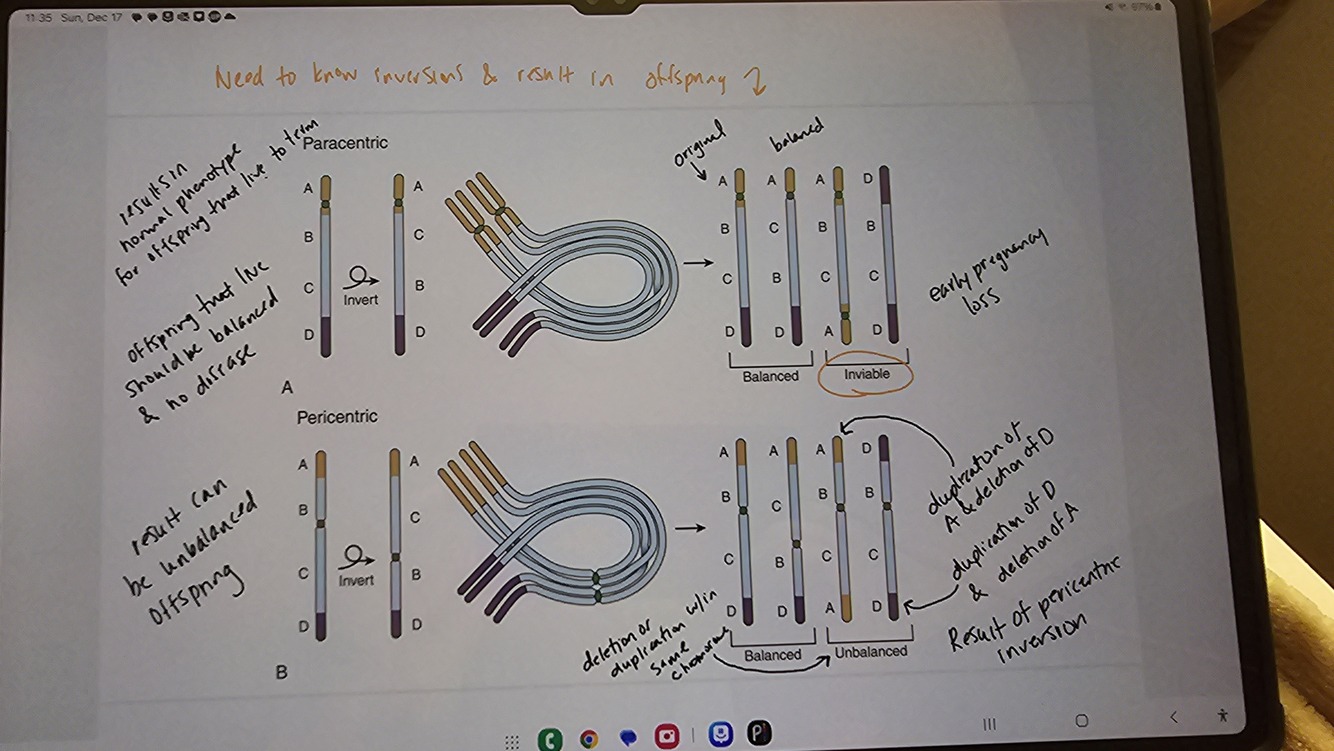 11:35 Sun, Dec 17
97%
Need to know inversions & result in offspring
results in
normal phenotype
for offspring that live to term
offspring that live
should be balanced
& no disease
Paracentric
A
B
C
D
Invert
A
C
B
D
original
balanced
A
B
C
D
A
C
B
D
A
B
C
A
D
B
C
D
Balanced
Inviable
early pregnancy
loss
A
Pericentric
result can
be unbalanced
offspring
A
B
C
D
Invert
A
C
B
D
A
B
C
D
A
C
B
D
A
B
C
A
D
B
C
D
Balanced
Unbalanced
deletion or
duplication w/in
same
chomorome
duplication of
A & deletion of D
duplication of D
& deletion of A
Result of pericentric
inversion
B